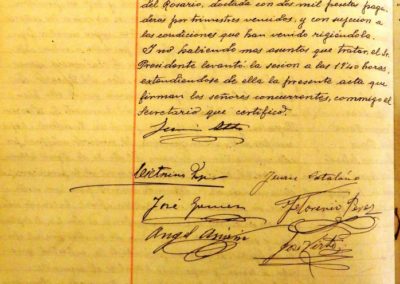 del Rosario, dotada con dos mil pesetas paga-
deras por trimestres vencidos, y con sujecion a
las condiciones que han venido rigiéndola.
I no habiendo mas asuntos que tratar, el Sr.
Presidente levantó la sesion a las 19'40 horas,
extendiendose de ella la presente acta que
firman los señores concurrentes, conmigo el
Secretario que certifico.
Juan Catalán
José Florencio Perez
Angel José